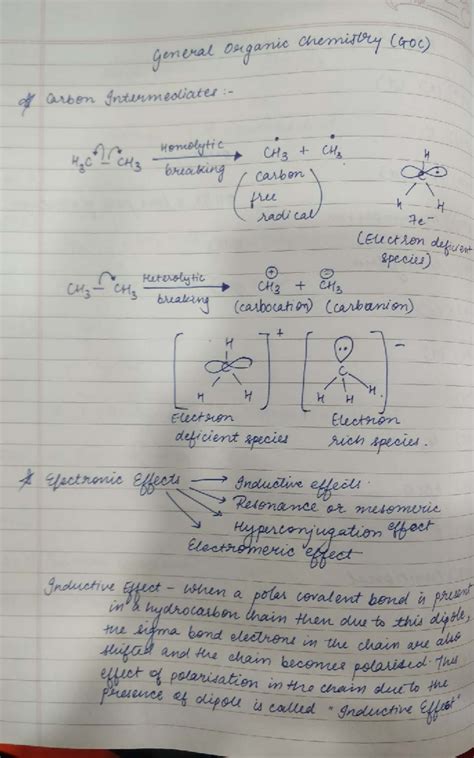 General Organic Chemistry (GOC)
Carbon Intermediates :-
H₃C – CH₃ Homolytic breaking → ĊH₃ + ĊH₃
(carbon free radical)
H
C
H H
7e⁻
(Electron deficient species)
CH₃ – CH₃ Heterolytic breaking → CH₃ + CH₃
⊕ ⊖
(carbocation) (carbanion)
[ H C H H ]⁺ [ C H H H ]⁻
Electron deficient species
Electron rich species.
Electronic Effects → Inductive effects.
→ Resonance or mesomeric
→ Hyperconjugation effect
→ Electromeric effect
Inductive Effect – when a polar covalent bond is present
in a hydrocarbon chain then due to this dipole,
the sigma bond electrons in the chain are also
shifted and the chain becomes polarised. This
effect of polarisation in the chain due to the
presence of dipole is called "Inductive Effect"